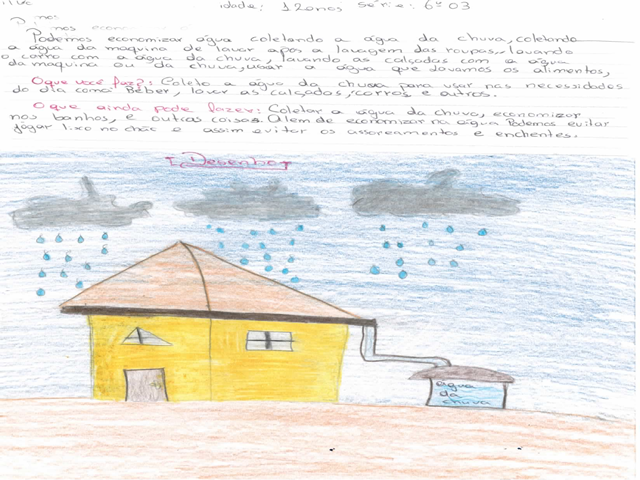 idade: 12anos série: 6º 03
Podemos economizar água coletando a água da chuva, coletando
a água da maquina de lavar apos a lavagem das roupas, lavando
o carro com a água da chuva, lavando as calçadas com a água
da maquina ou da chuva, usar a água que lavamos os alimentos,
O que você faz?: Coleto a água da chuva para usar nas necessidades
do dia como Beber, lavar as calçadas, carros e outros.
O que ainda pode fazer: Coletar a água da chuva, economizar
nos banhos, e outras coisas. Alem de economizar na água Podemos evitar
jogar lixo no chão e assim evitar os assoreamentos e enchentes.
Desenho
água
da
chuva